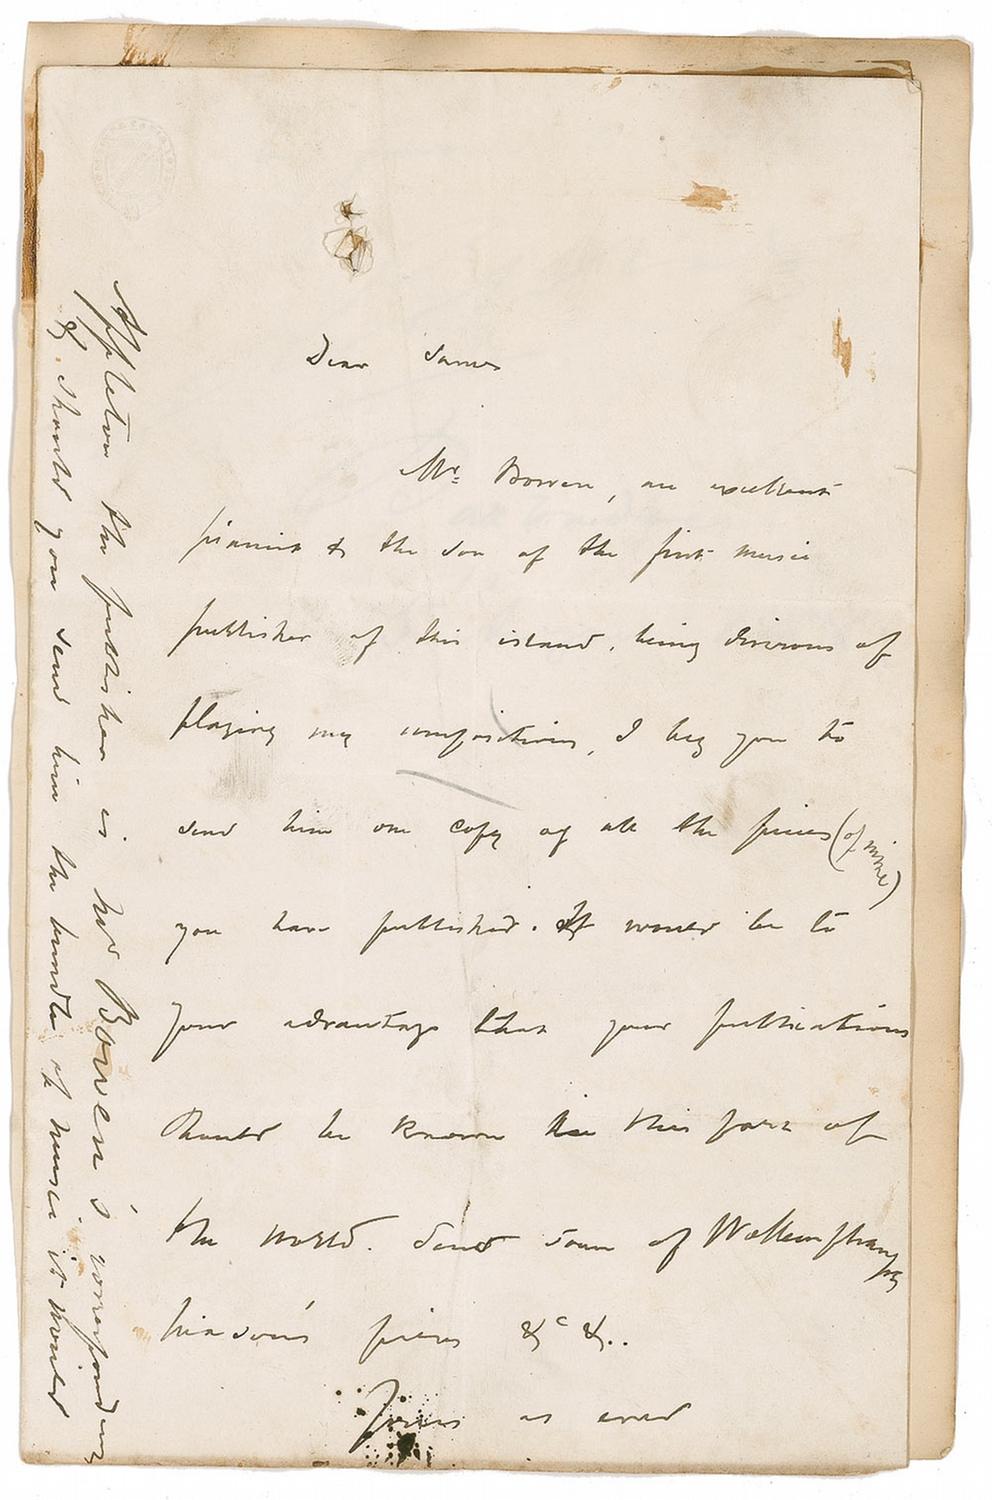 Dear James
Mr. Bowen, an excellent
pianist & the son of the first music
publisher of this island, being desirous of
playing my compositions, I beg you to
send him one copy of all the pieces (of mine)
you have published. It would be to
your advantage that your publications
should be known in this part of
the world. Send some of Wollenhaupt
pieces &c &..
Yours as ever
Appleton the publisher is Bowen's corresponding
& should you send him the bundle of music it would